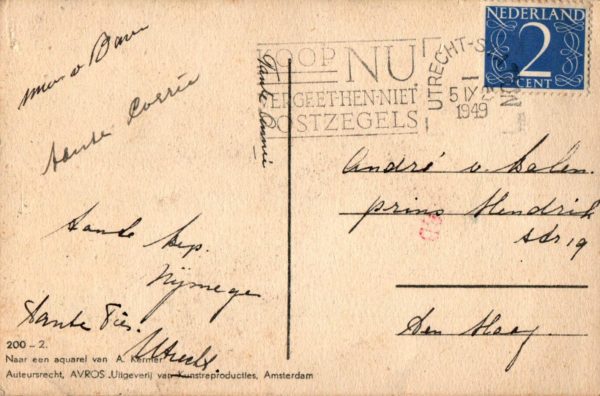 mevr v Baren
tante Corrie
Tante Annie
tante Bep.
Nijmegen
tante Ties.
Utrecht.
200 – 2.
Naar een aquarel van A. Kermer
Auteursrecht, AVROS „Uitgeverij van Kunstreproducties, Amsterdam
KOOP NU
VERGEET-HEN-NIET
POSTZEGELS
UTRECHT-S
5 IX 2
1949
NEDERLAND
2
CENT
André v. Galen.
prins Hendrik
str 19
Den Haag.